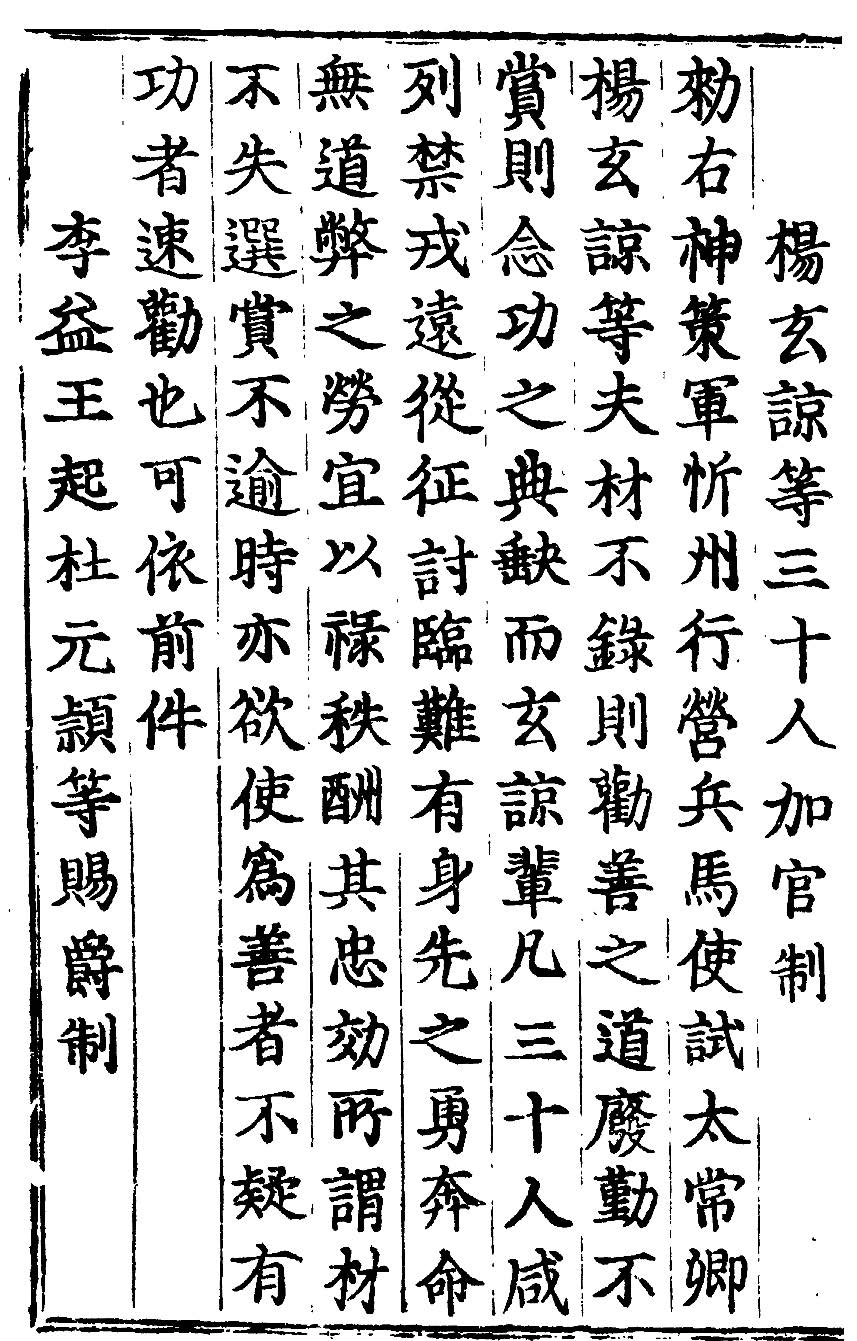 楊玄諒等三十人加官制
勑右神策軍忻州行營兵馬使試太常卿
楊玄諒等夫材不錄則勸善之道廢勤不
賞則念功之典䖏而玄諒輩凡三十人咸
列禁戎遠從征討臨難有身先之勇奔命
無道弊之勞宜以祿秩酬其忠効所謂材
不失選賞不逾時亦欲使爲善者不疑有
功者速勸也可依前件
李益王起杜元頴等賜爵制